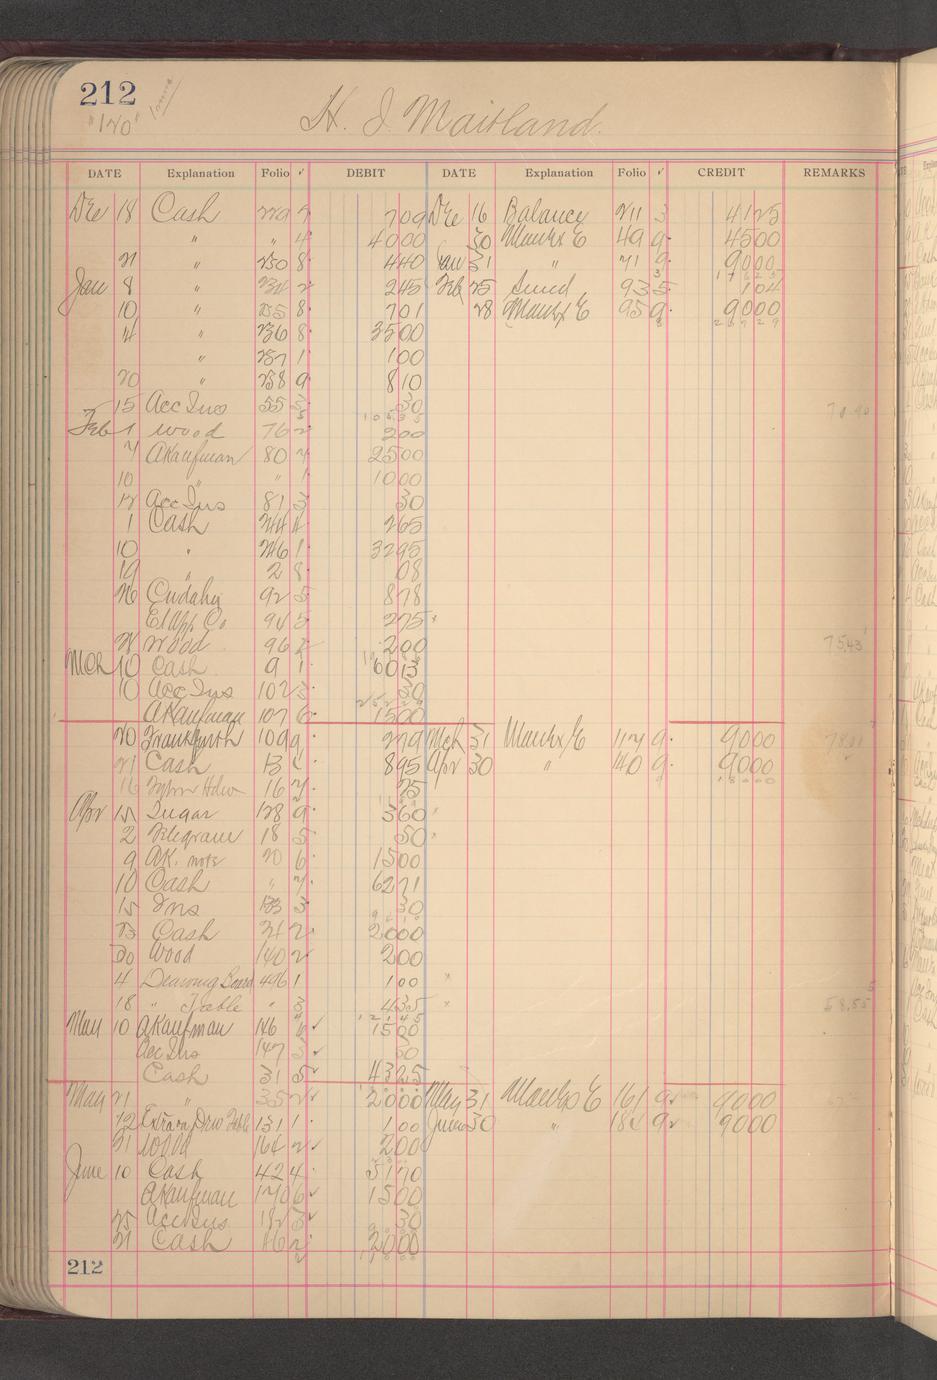 212
"120"
H. J. Maitland.
DATE Explanation Folio ✓ DEBIT DATE Explanation Folio ✓ CREDIT REMARKS
Dec 18 Cash 229 7 709 Dec 16 Balance 211 3 4125
" " 4 4000 30 Mankx E 49 9 4500
21 " 230 8 440 Jan 31 " 71 9 9000
Jan 8 " 2 245 Feb 25 Sund 93 5 104
10 " 235 8 701 28 Mankx E 95 9 9000
14 " 236 8 3500
" 237 1 100
20 " 238 9 810
15 Acc Ins 55 3 30
Feb 1 Wood 76 2 200
7 A Kaufman 80 7 2500
10 " " 1 1000
12 Acc Ins 81 3 30
1 Cash 244 4 265
10 " 246 1 3295
19 " 2 8 08
26 Cudahy 92 5 878
El App. Co 94 5 275
28 Wood 96 2 200 75.43
Mch 10 Cash 9 1 6013
10 Acc Ins 102 3 30
A Kaufman 107 6 1500
20 Frankfurth 109 9 279 Mch 31 Mankx E 117 9 9000
21 Cash 13 895 Apr 30 " 140 9 9000
16 Hdw 16 7 75
Apr 15 Sugar 128 9 360
2 Telegram 18 5 50
9 A.K. note 20 6 1500
10 Cash " 7 6271
15 Ins 133 3 30
23 Cash 24 2 2000
30 Wood 140 2 200
4 Drawing Board 496 1 100
18 " Table " 3 435 58.55
May 10 A Kaufman 146 6 ✓ 1500
Acc Ins 147 3 ✓ 30
Cash 31 5 ✓ 4325
May 21 " 35 2 ✓ 2000 May 31 Mankx E 161 9 ✓ 9000
12 Extra on Drw Table 131 1 100 June 30 " 184 9 ✓ 9000
31 Wood 164 2 ✓ 200
June 10 Cash 42 4 5170
A Kaufman 170 6 ✓ 1500
25 Acc Ins 182 3 ✓ 30
21 Cash 46 2 2000
212